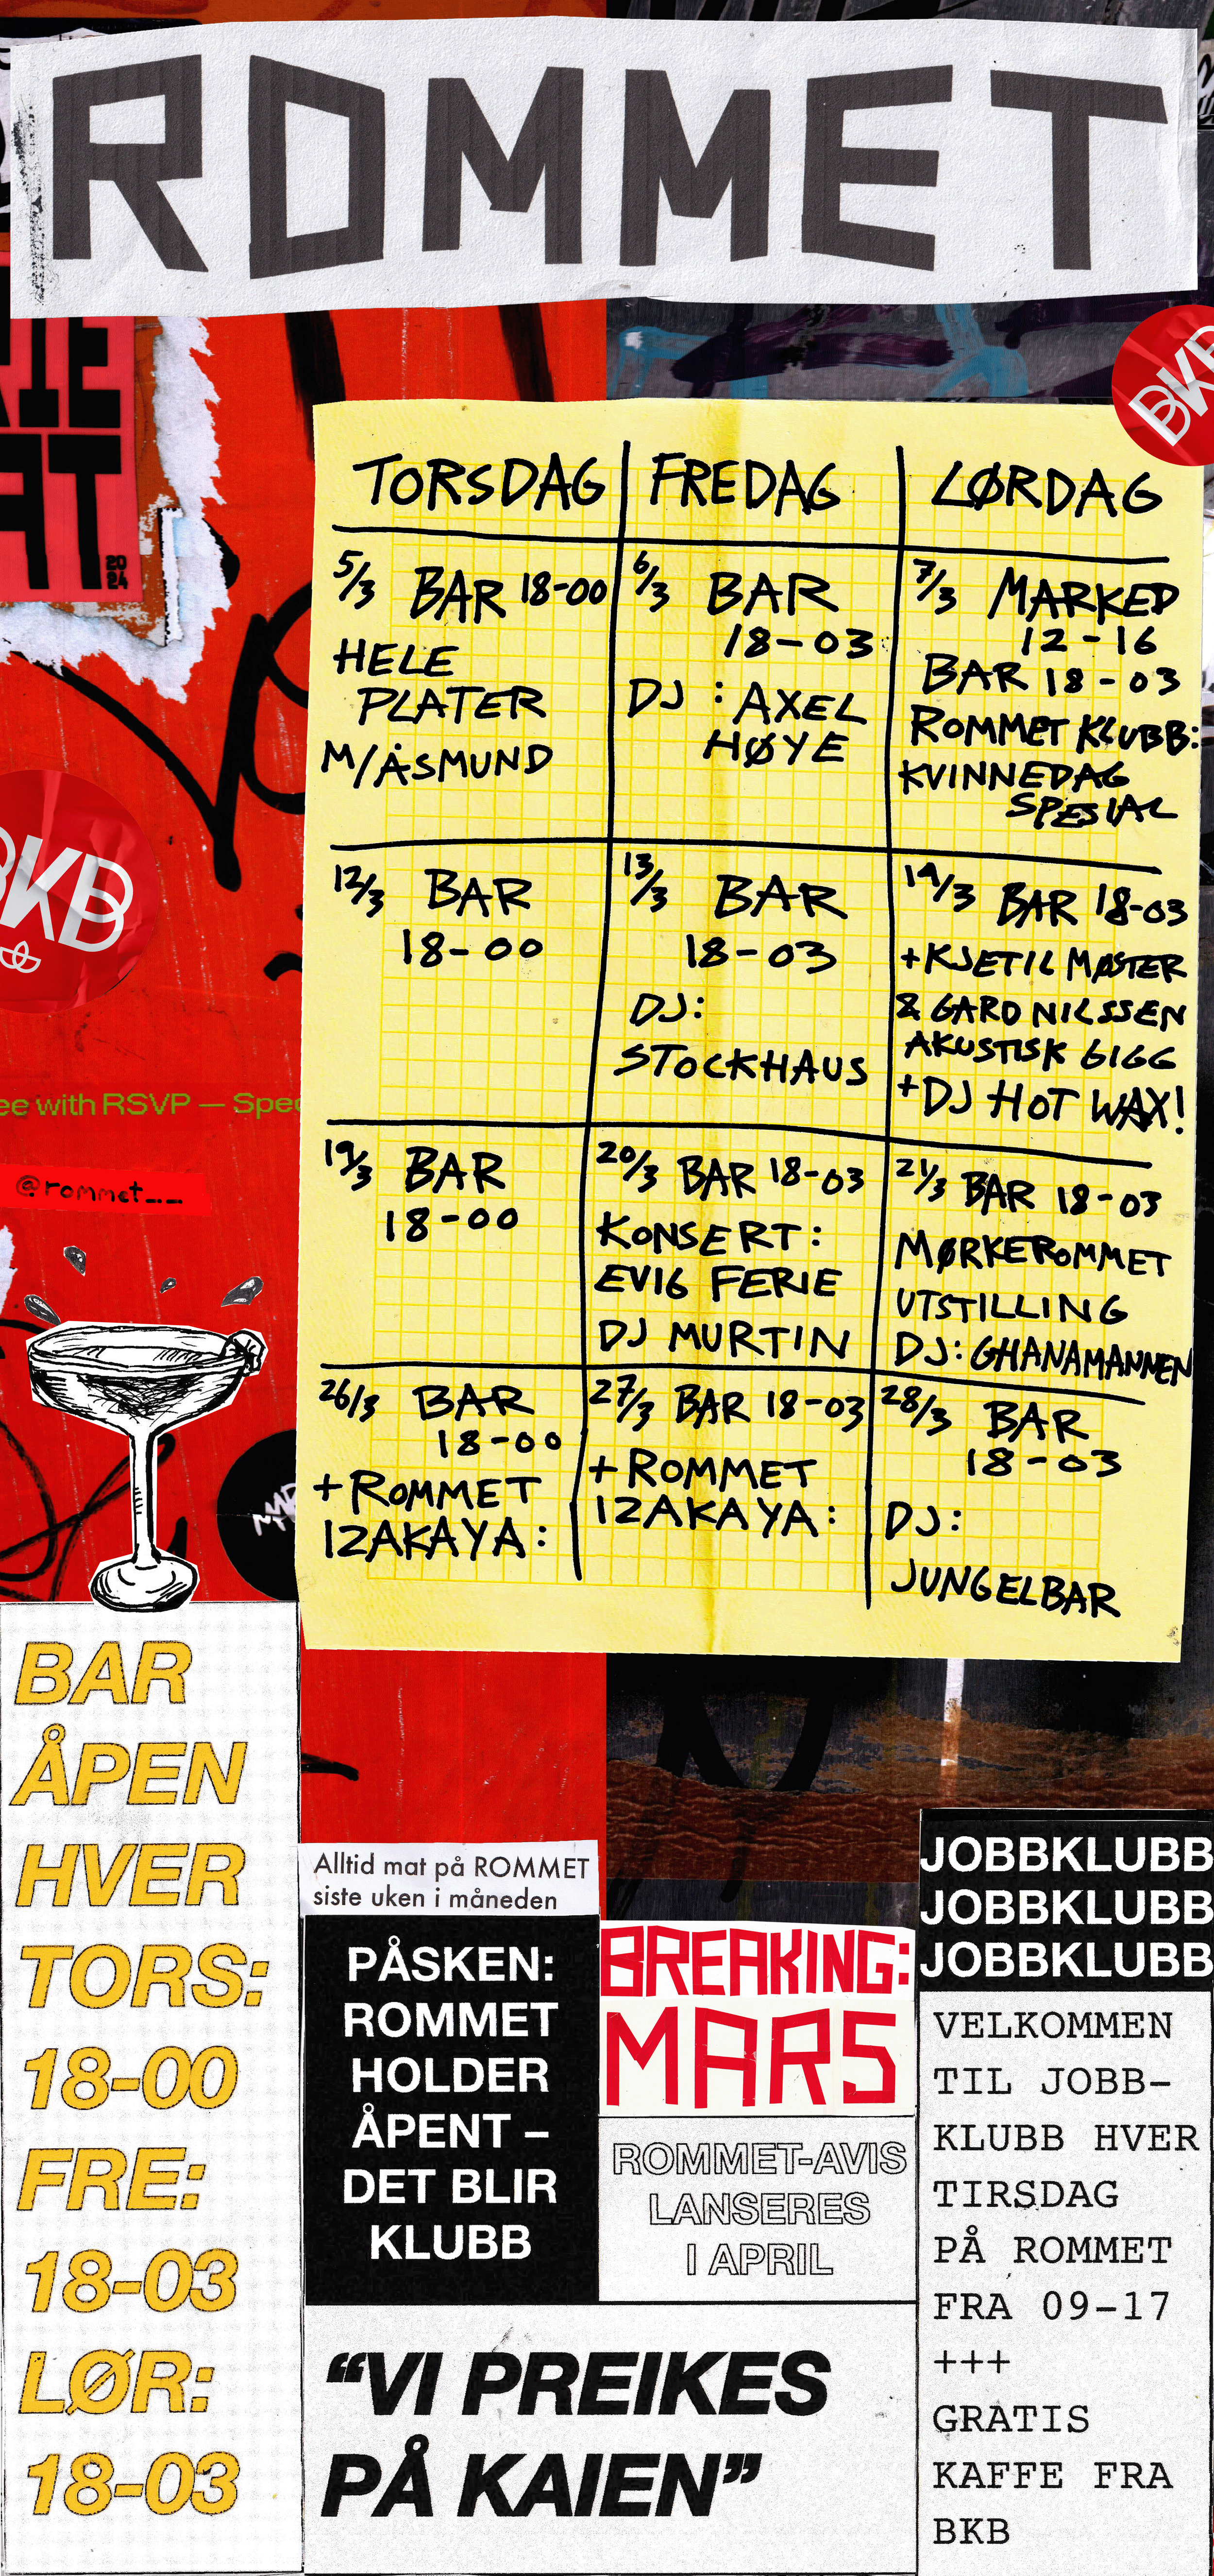 ROMMET
BKB
TORSDAG
FREDAG
LØRDAG
5/3 BAR 18-00
HELE
PLATER
M/ÅSMUND
6/3 BAR
18-03
DJ: AXEL
HØYE
7/3 MARKED
12-16
BAR 18-03
ROMMET KLUBB:
KVINNEDAG
SPESIAL
12/3 BAR
18-00
13/3 BAR
18-03
DJ:
STOCKHAUS
14/3 BAR 18-03
+KJETIL MØSTER
& GARD NILSSEN
AKUSTISK GIGG
+DJ HOT WAX!
19/3 BAR
18-00
20/3 BAR 18-03
KONSERT:
EVIG FERIE
DJ MURTIN
21/3 BAR 18-03
MØRKEROMMET
UTSTILLING
DJ: GHANAMANNEN
26/3 BAR
18-00
+ROMMET
IZAKAYA:
27/3 BAR 18-03
+ROMMET
IZAKAYA:
28/3 BAR
18-03
DJ:
JUNGELBAR
20
24
BKB
ee with RSVP — Spec
@rommet__
BAR
ÅPEN
HVER
TORS:
18-00
FRE:
18-03
LØR:
18-03
Alltid mat på ROMMET
siste uken i måneden
PÅSKEN:
ROMMET
HOLDER
ÅPENT –
DET BLIR
KLUBB
BREAKING:
MARS
ROMMET-AVIS
LANSERES
I APRIL
“VI PREIKES
PÅ KAIEN”
JOBBKLUBB
JOBBKLUBB
JOBBKLUBB
VELKOMMEN
TIL JOBB-
KLUBB HVER
TIRSDAG
PÅ ROMMET
FRA 09-17
+++
GRATIS
KAFFE FRA
BKB